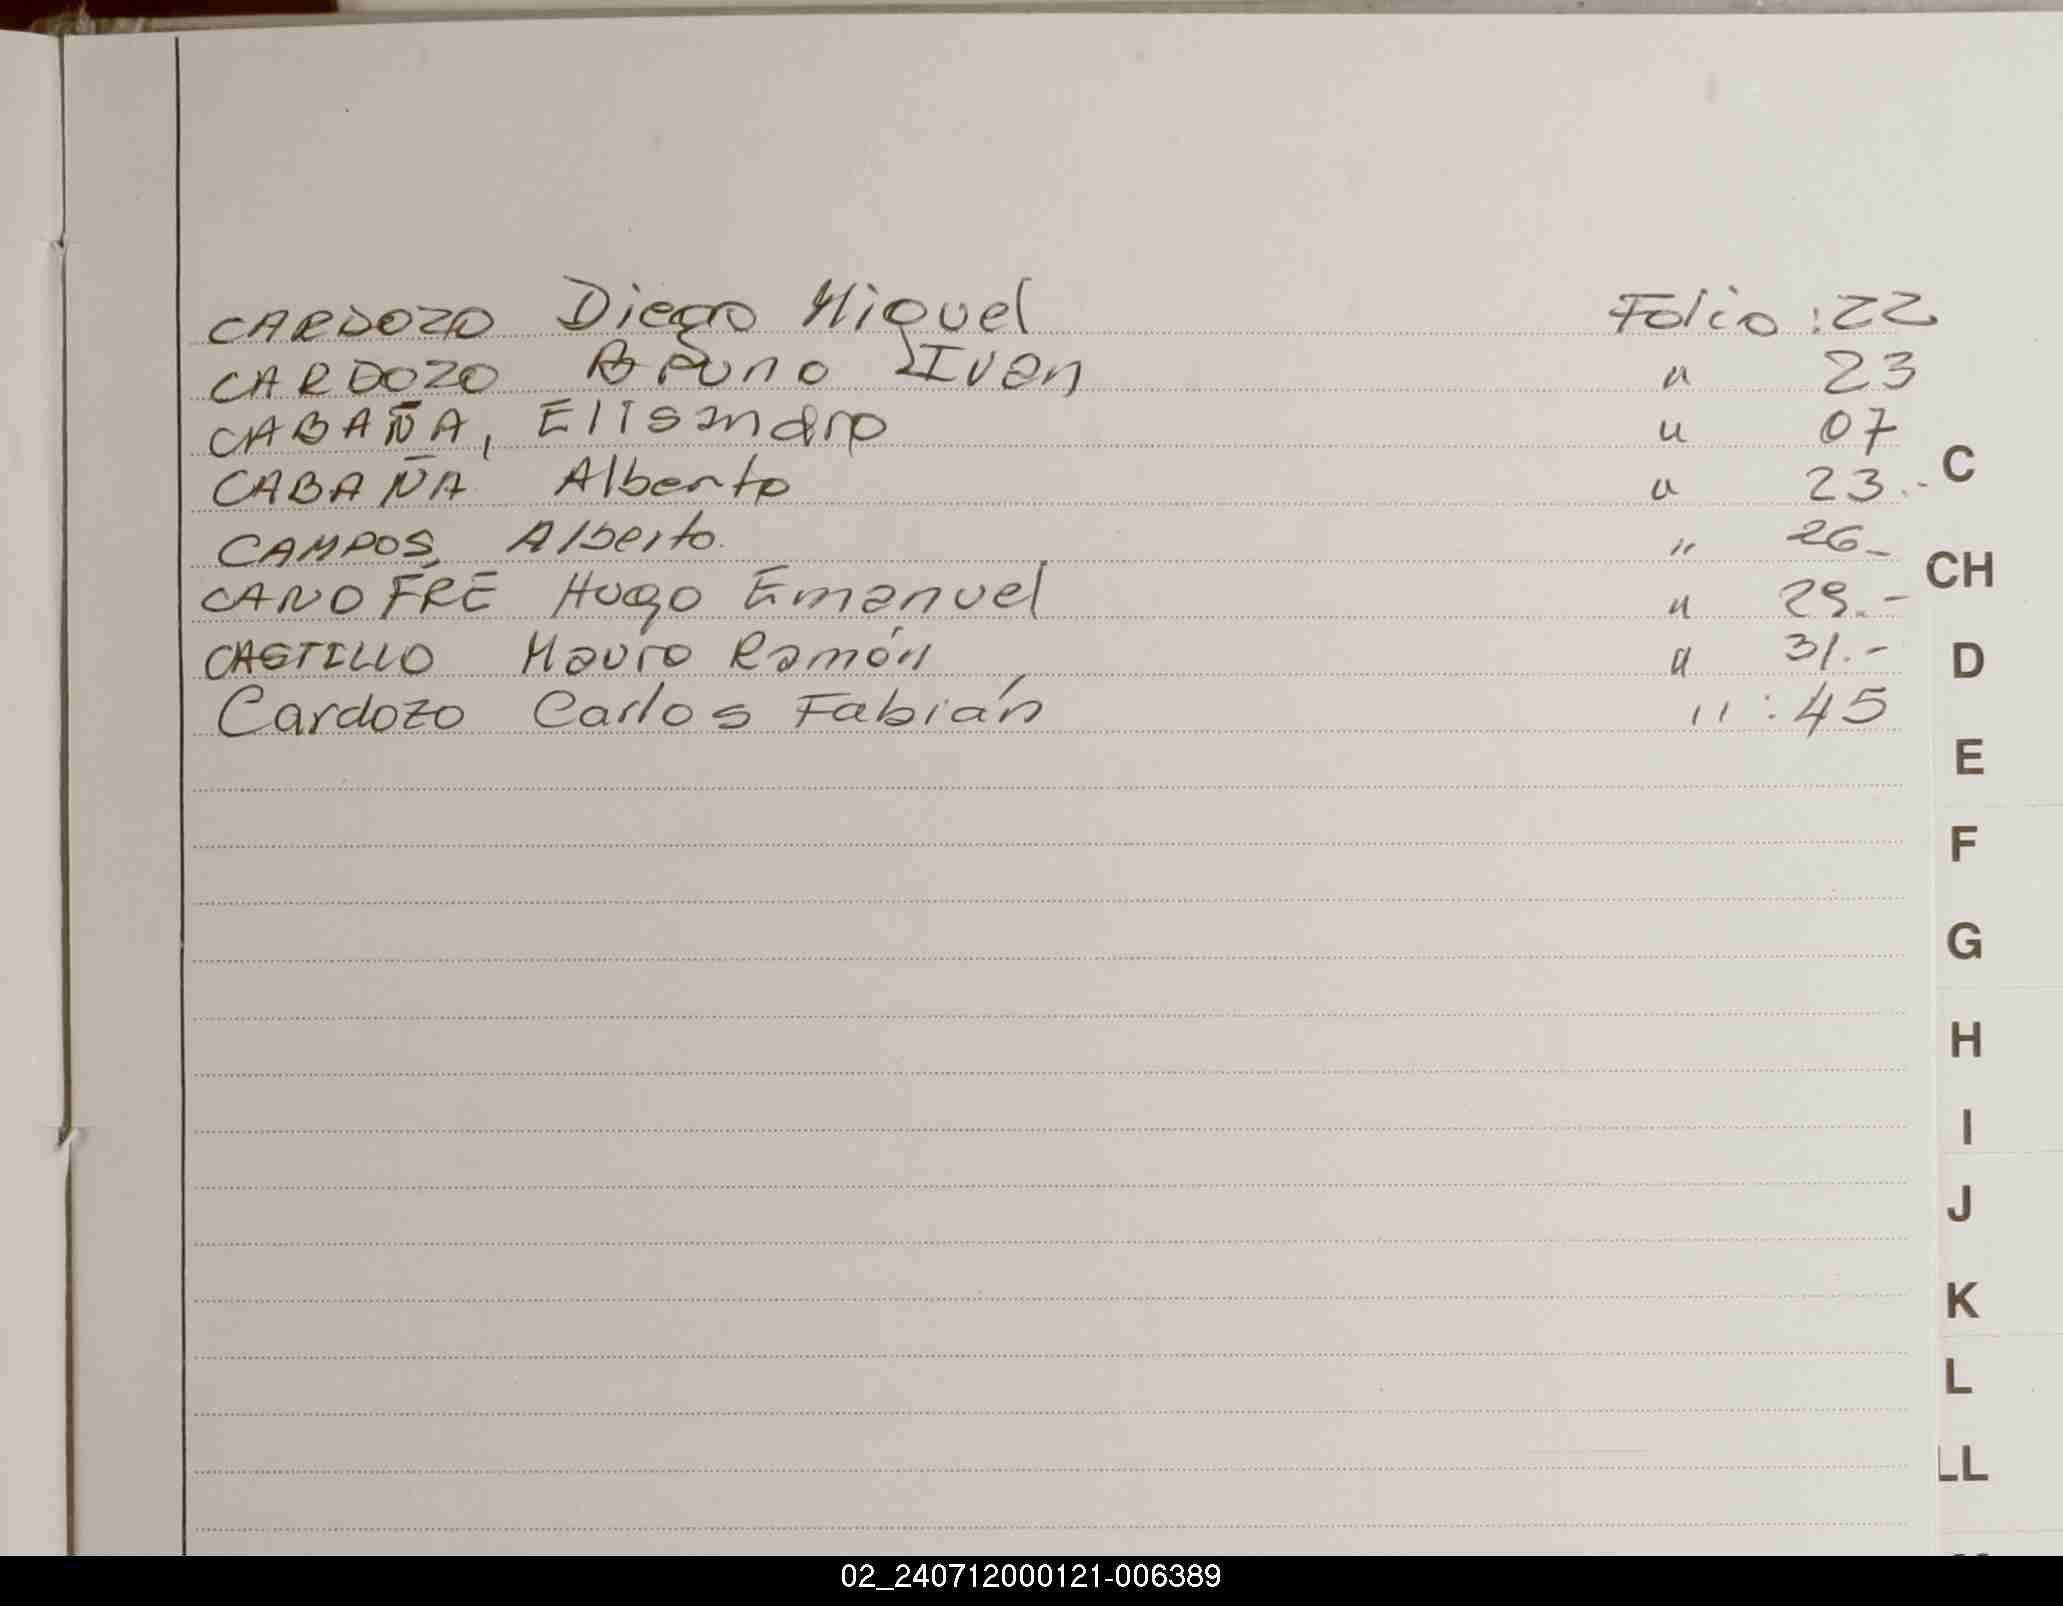 CARDOZO Diego Miguel Folio : 22
CARDOZO Bruno Ivan " 23
CABAÑA, Elisandro " 07
CABAÑA Alberto " 23.-
CAMPOS, Alberto. " 26-
CANOFRÉ Hugo Emanuel " 29.-
CASTILLO Mauro Ramón " 31.-
Cardozo Carlos Fabián " : 45
C
CH
D
E
F
G
H
I
J
K
L
LL
02_240712000121-006389